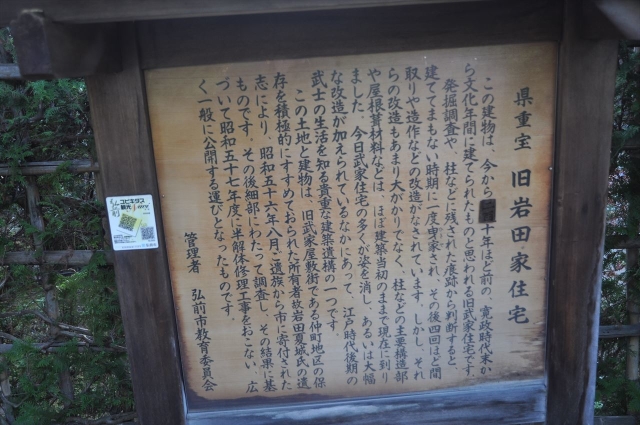 県重宝 旧岩田家住宅
この建物は、今から　　十年ほど前の、寛政時代末か
ら文化年間に建てられたものと思われる旧武家住宅です。
発掘調査や、柱などに残された痕跡から判断すると、
建ててまもない時期に一度曳家され、その後四回ほど間
取りや造作などの改造がなされています。しかし、それ
らの改造もあまり大がかりでなく、柱などの主要構造部
や屋根葺材料などは、ほぼ建築当初のままで現在に到り
ました。今日武家住宅の多くが姿を消し、あるいは大幅
な改造が加えられているなかにあって、江戸時代後期の
武士の生活を知る貴重な建築遺構の一つです。
この土地と建物は、旧武家屋敷街である仲町地区の保
存を積極的にすすめておられた所有者故岩田夏城氏の遺
志により、昭和五十六年八月ご遺族から市に寄付された
ものです。その後細部にわたって調査し、その結果に基
づいて昭和五十七年度に半解体修理工事をおこない、広
く一般に公開する運びとなったものです。
管理者　弘前市教育委員会
ユビキタス
観光ナビ
弘前